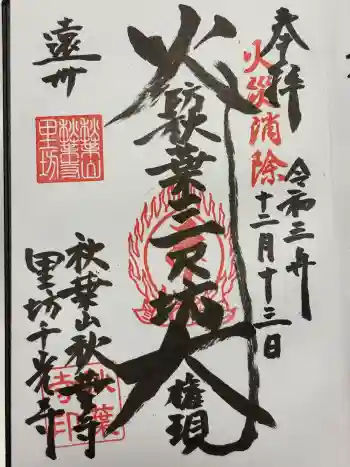 奉拝
火災消除
令和三年
十二月十三日
火防秋葉三尺坊大権現
遠州
秋葉山秋葉寺
里坊千光寺
秋葉山
秋葉寺
里坊
秋葉
寺印